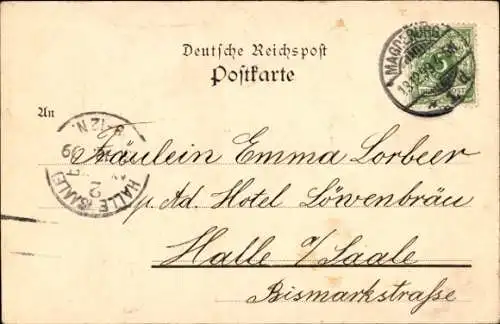 Deutsche Reichspost
Postkarte
An
MAGDEBURG
5
HALLE (SAALE)
2
Fräulein Emma Lorbeer
p. Ad. Hotel Löwenbräu
Halle a/Saale
Bismarckstraße